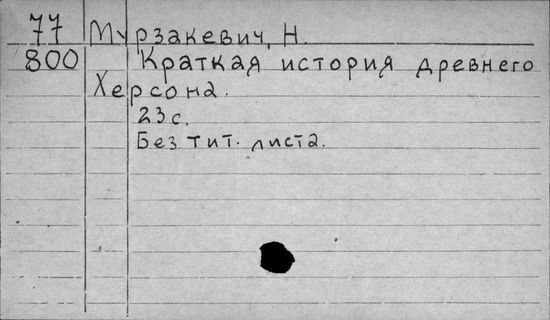 77 Мурзакевич, Н.
800 Краткая история древнего
Херсона.
23 с.
Без тит. листа.